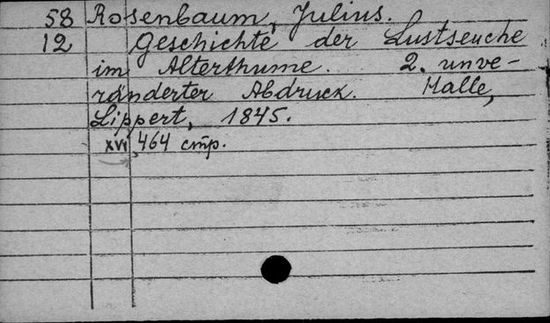 58 Rosenbaum, Julius.
12 Geschichte der Lustseuche
im Alterthume. 2. unve-
ränderter Abdruck. Halle,
Lippert, 1845.
XVI, 464 стр.